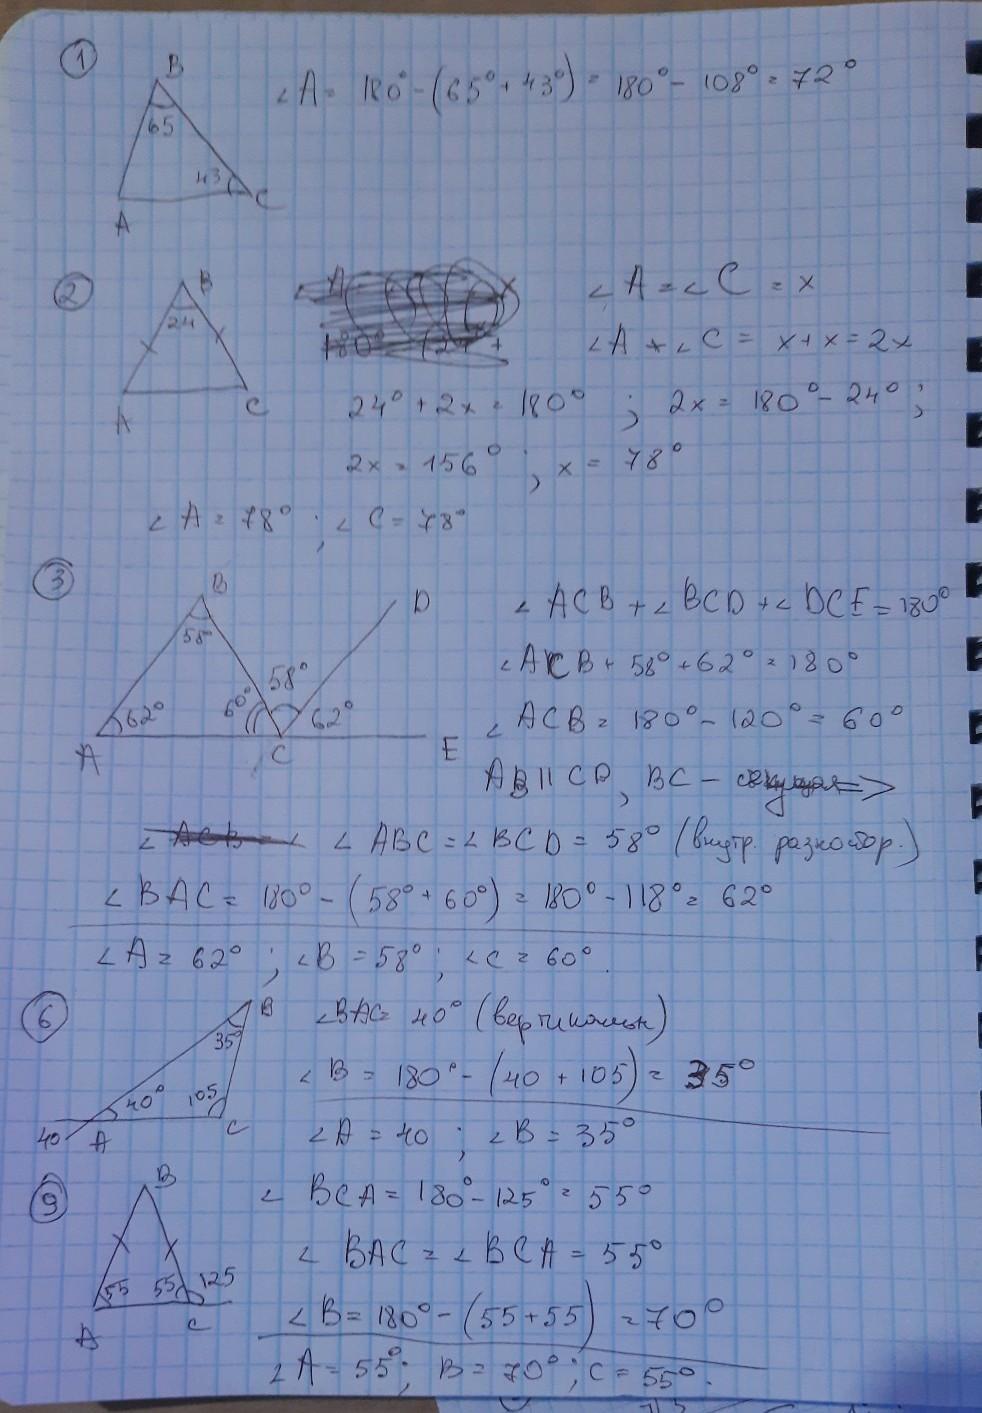 1
B
65
43
A
C
∠A = 180° - (65° + 43°) = 180° - 108° = 72°
2
B
24
A
C
∠A = ∠C = x
∠A + ∠C = x + x = 2x
24° + 2x = 180° ; 2x = 180° - 24° ;
2x = 156° ; x = 78°
∠A = 78° ; ∠C = 78°
3
B
58
62°
60°
58°
62°
A
C
D
E
∠ACB + ∠BCD + ∠DCE = 180°
∠ACB + 58° + 62° = 180°
∠ACB = 180° - 120° = 60°
AB || CD, BC - секущая =>
∠ABC = ∠BCD = 58° (внутр. разностор.)
∠BAC = 180° - (58° + 60°) = 180° - 118° = 62°
∠A = 62° ; ∠B = 58° ; ∠C = 60°.
6
B
35°
40°
105
40
A
C
∠BAC = 40° (вертикальн)
∠B = 180° - (40 + 105) = 35°
∠A = 40 ; ∠B = 35°
9
B
55
55
125
A
C
∠BCA = 180° - 125° = 55°
∠BAC = ∠BCA = 55°
∠B = 180° - (55 + 55) = 70°
∠A = 55° ; B = 70° ; C = 55°.